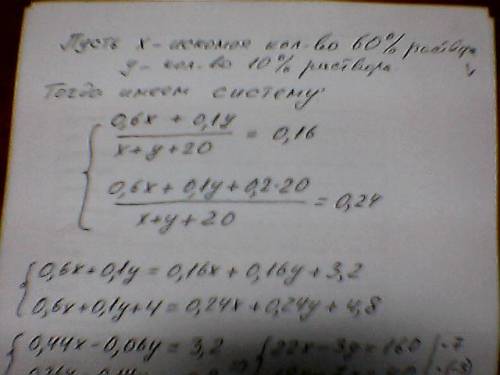 Пусть x - искомое кол-во 60% раствора,
y - кол-во 10% раствора
Тогда имеем систему
{ (0,6x + 0,1y)/(x+y+20) = 0,16
(0,6x + 0,1y + 0,2·20)/(x+y+20) = 0,24
{ 0,6x+0,1y = 0,16x + 0,16y + 3,2
0,6x+0,1y+4 = 0,24x + 0,24y + 4,8
{ 0,44x - 0,06y = 3,2 { 22x - 3y = 160 | -7